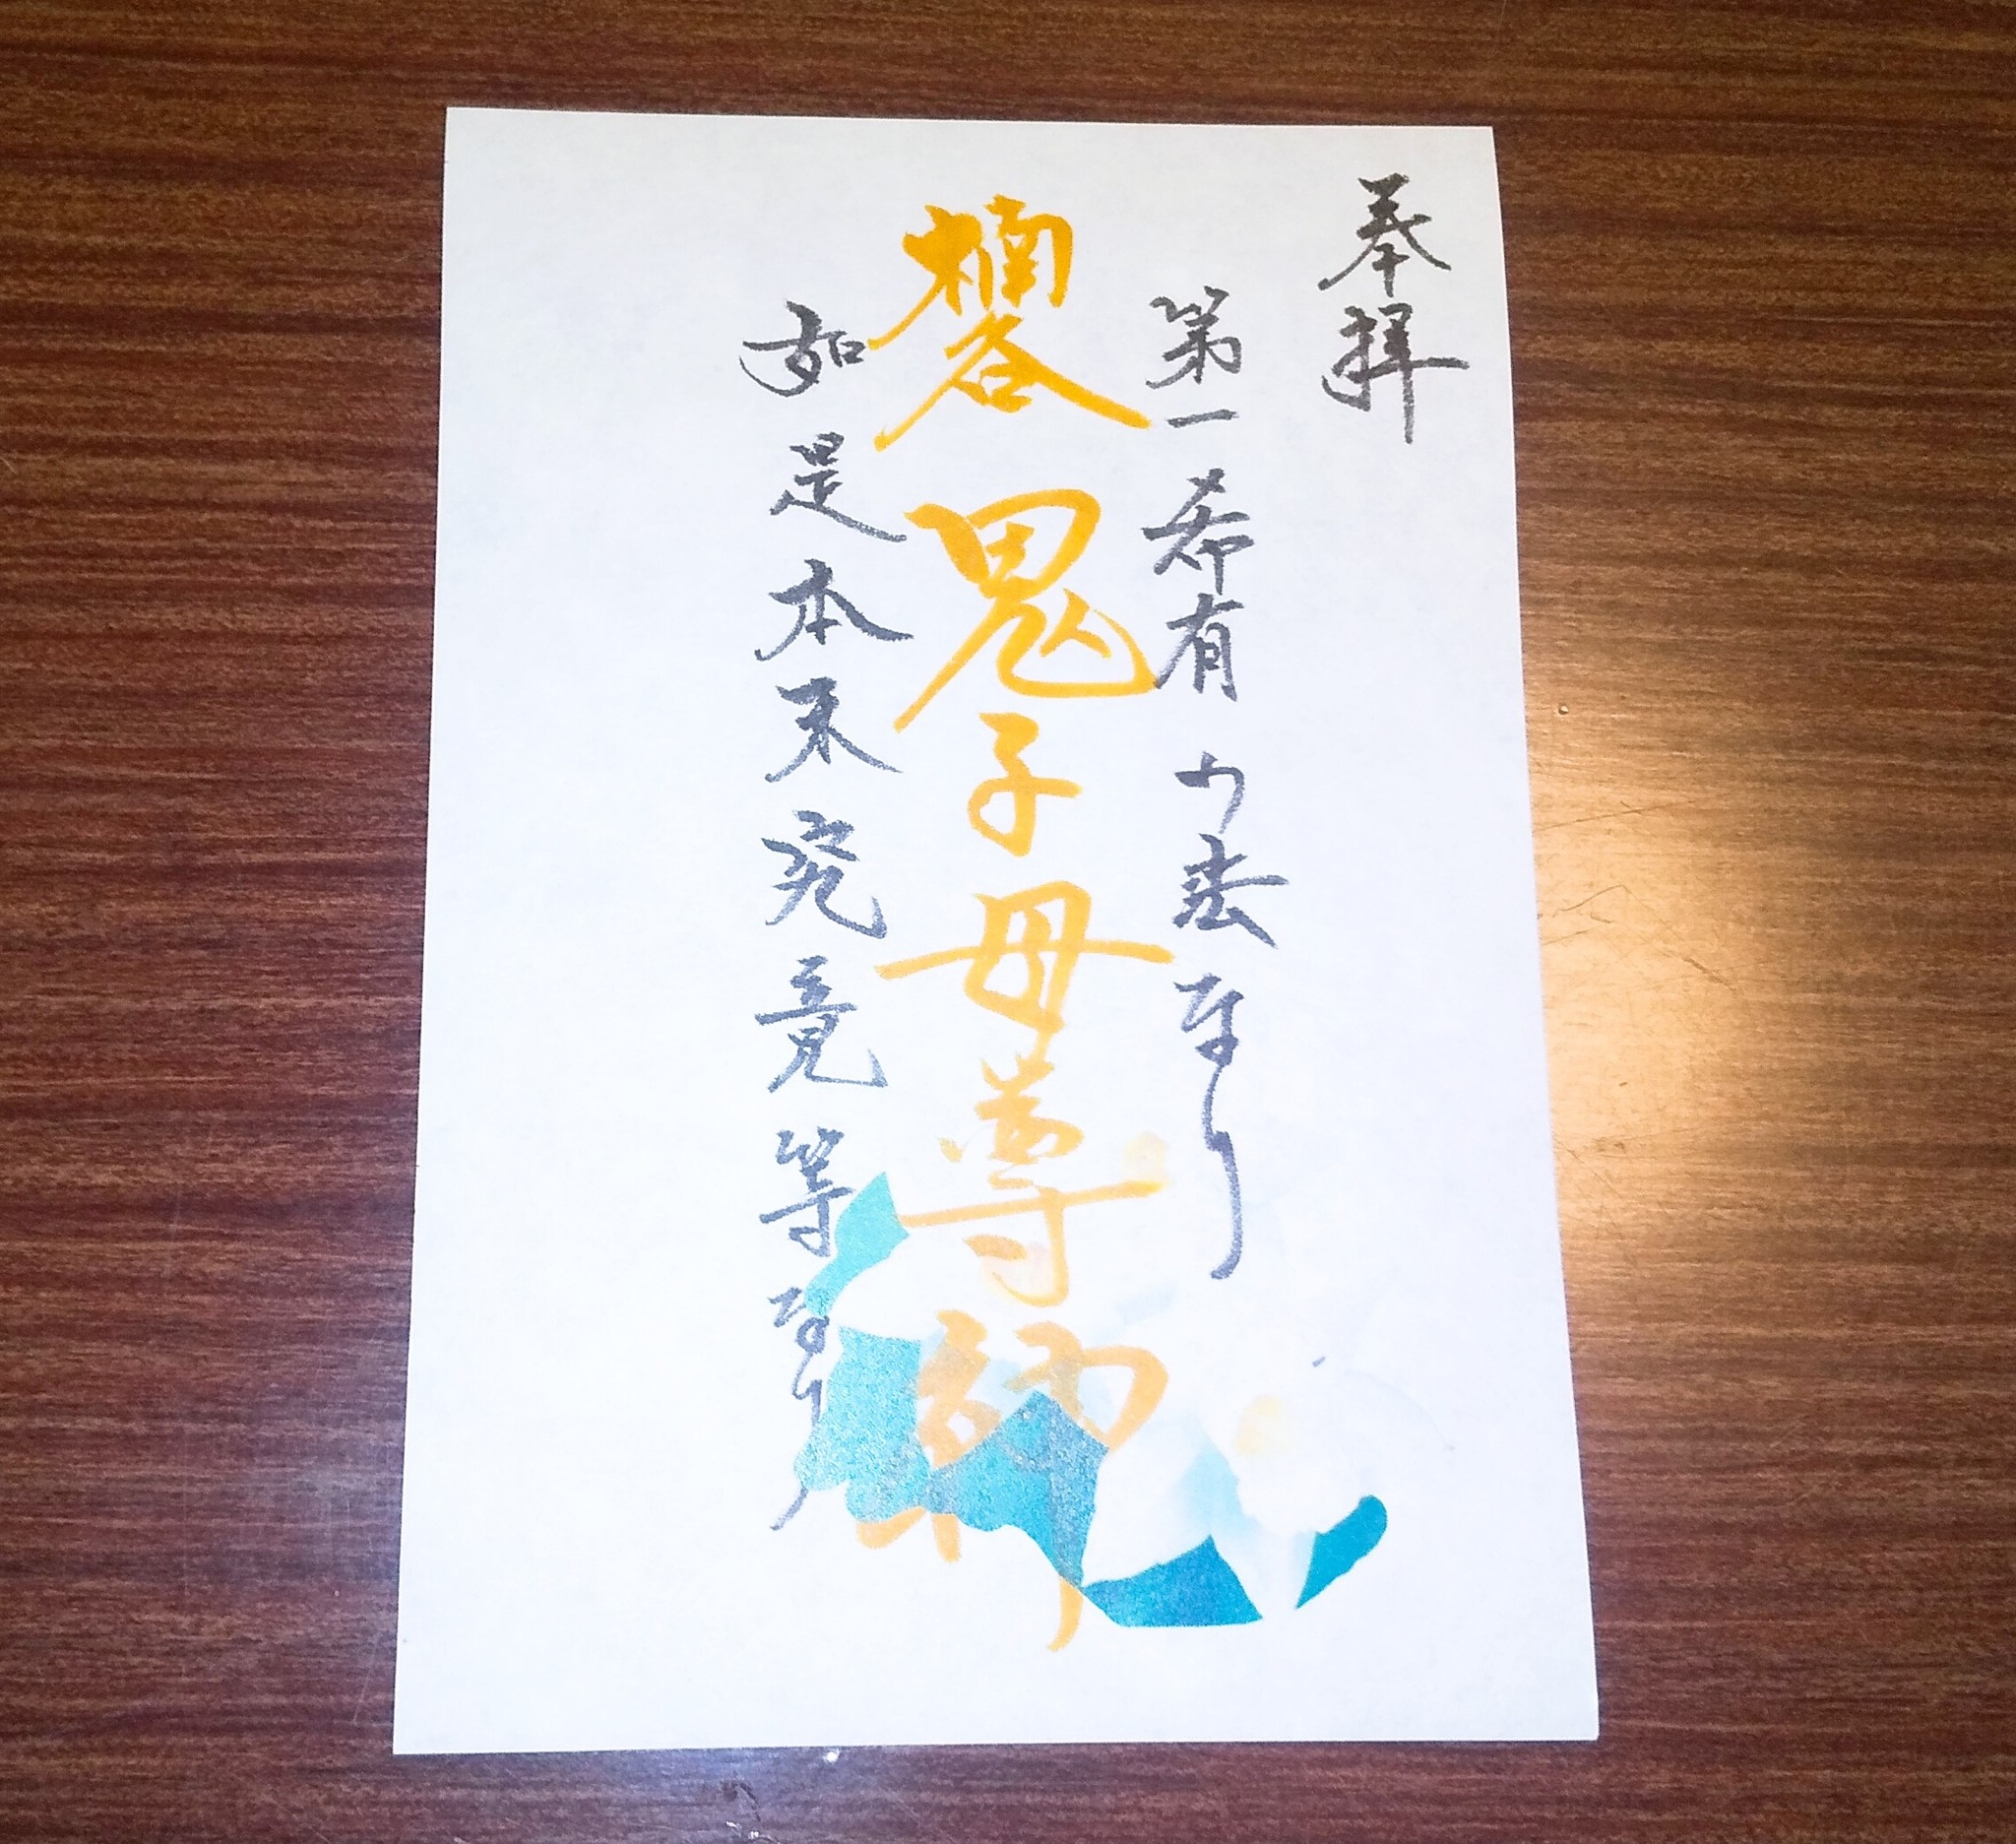 奉拝
第一希有の法なり
楠谷鬼子母尊神
如是本末究竟等なり